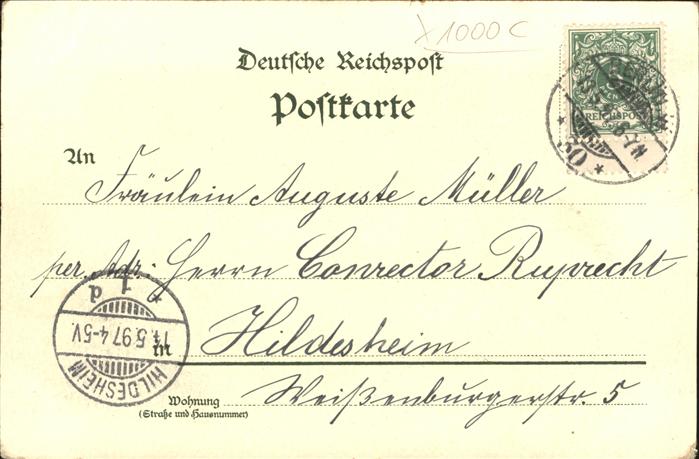 X 1000 C
Deutsche Reichspost
Postkarte
REICHSPOST
BERLIN W
* 30 *
An Fräulein Auguste Müller
per. Adr. Herrn Conrector Ruprecht
in Hildesheim
Wohnung Weißenburgerstr. 5
(Straße und Hausnummer)
HILDESHEIM
14.5.97.4-5V.
* 1 d